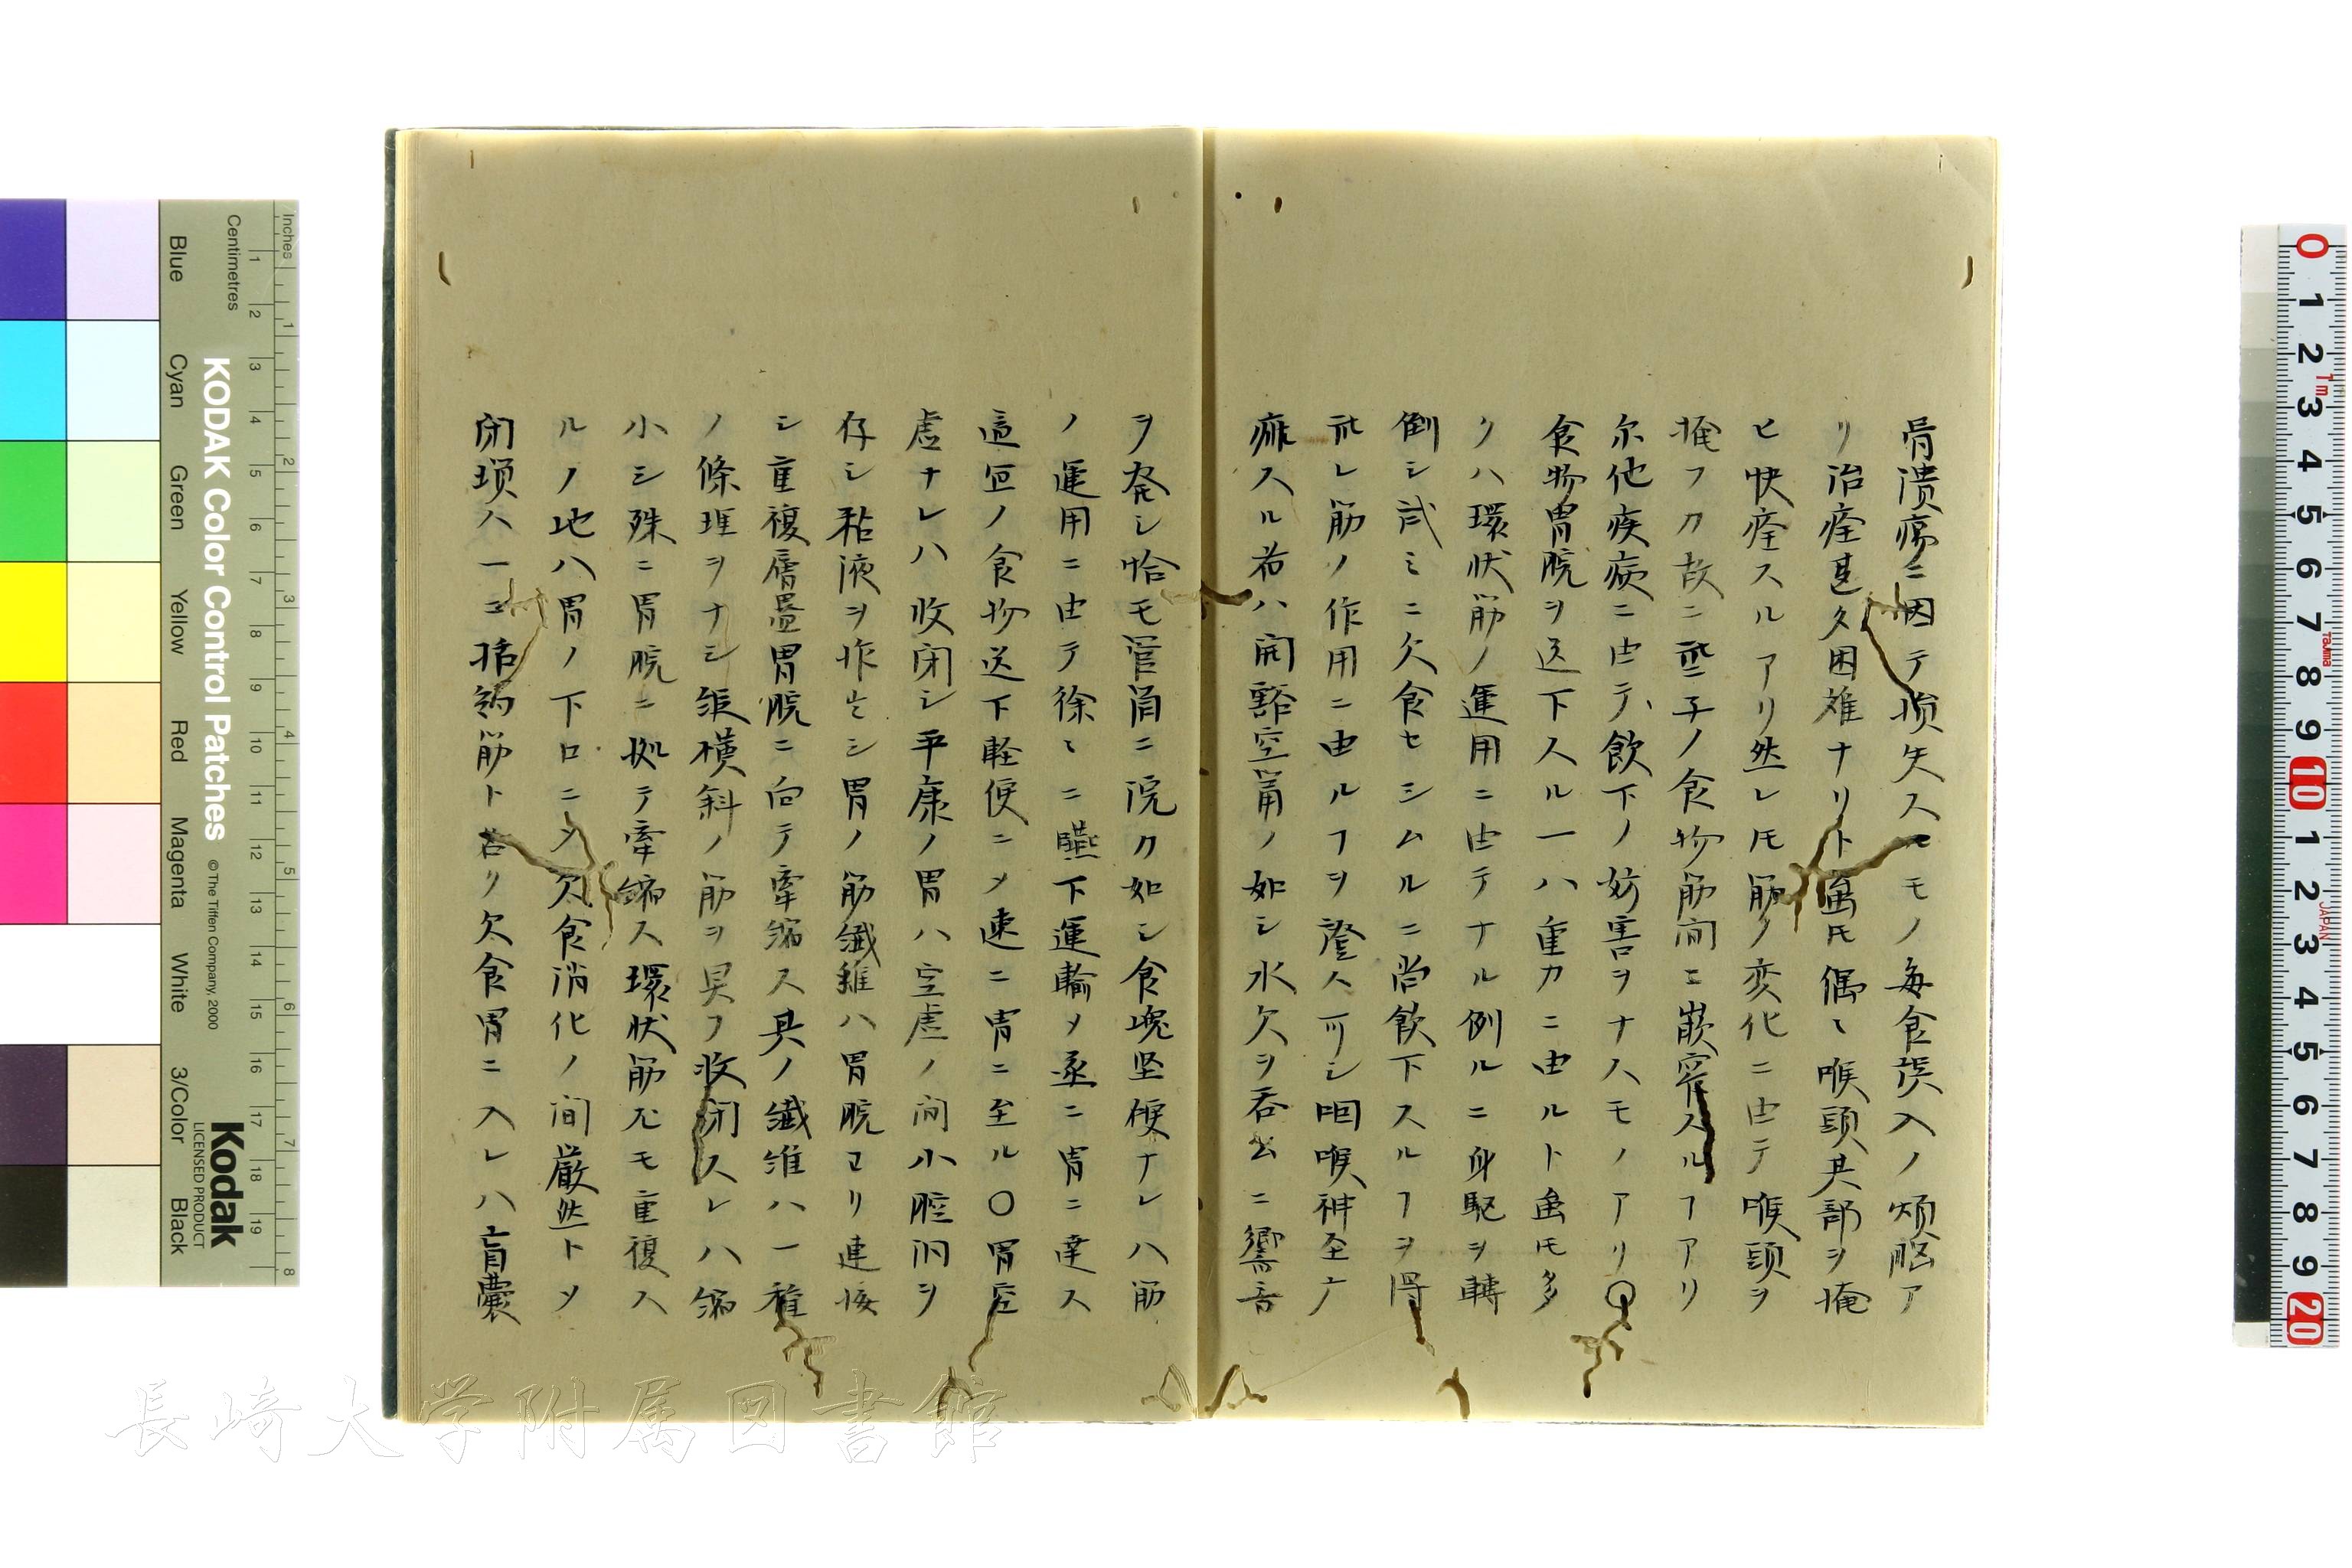 骨潰瘍ニ因テ損失スルモノ毎食誤入ノ煩脳ア
リ治痊甚タ困難ナリト雖𪜈偶〻喉頭其部ヲ掩
ヒ快痊スルアリ然レ𪜈筋ノ変化ニ由テ喉頭ヲ
掩フカ故ニ些子ノ食物筋間ニ嵌容スルヿアリ
尓他疾病ニ由テ飲下ノ妨害ヲナスモノアリ〇
食物胃脘ヲ送下スル一ハ重力ニ由ルト雖𪜈多
クハ環状筋ノ運用ニ由テナル例ルニ身駆ヲ轉
倒シ試ミニ欠食セシムルニ尚飲下スルヿヲ得
ルノ筋ノ作用ニ由ルヿヲ證ス可シ咽喉神全ク
痲スル者ハ開豁空筩ノ如シ水欠ヲ呑ムニ響音
ヲ発シ恰モ管筩ニ浣カ如シ食塊坚硬ナレハ筋
ノ運用ニ由テ徐〻ニ嚥下運輸メ遂ニ胃ニ達ス
適宜ノ食物送下軽便ニメ速ニ胃ニ至ル〇胃空
虚ナレハ收閉シ平康ノ胃ハ空虚ノ間小腔洞ヲ
存シ粘液ヲ作生シ胃ノ筋纎維ハ胃脘ヨリ連接
シ重復層畳胃脘ニ向テ牽縮ス具ノ纎維ハ一種
ノ條理ヲナシ縦横斜ノ筋ヲ具フ收閉スレハ縮
小シ殊ニ胃脘ニ拠テ牽縮ス環状筋尤モ重復ス
ルノ地ハ胃ノ下口ニメ欠食消化ノ間厳然トメ
閉瑣ス一ニ括約筋ト名ク欠食胃ニ入レハ盲囊
Inches
Centimetres
KODAK Color Control Patches
© The Tiffen Company, 2000
Kodak
LICENSED PRODUCT
Blue
Cyan
Green
Yellow
Red
Magenta
White
3/Color
Black
長崎大学附属図書館